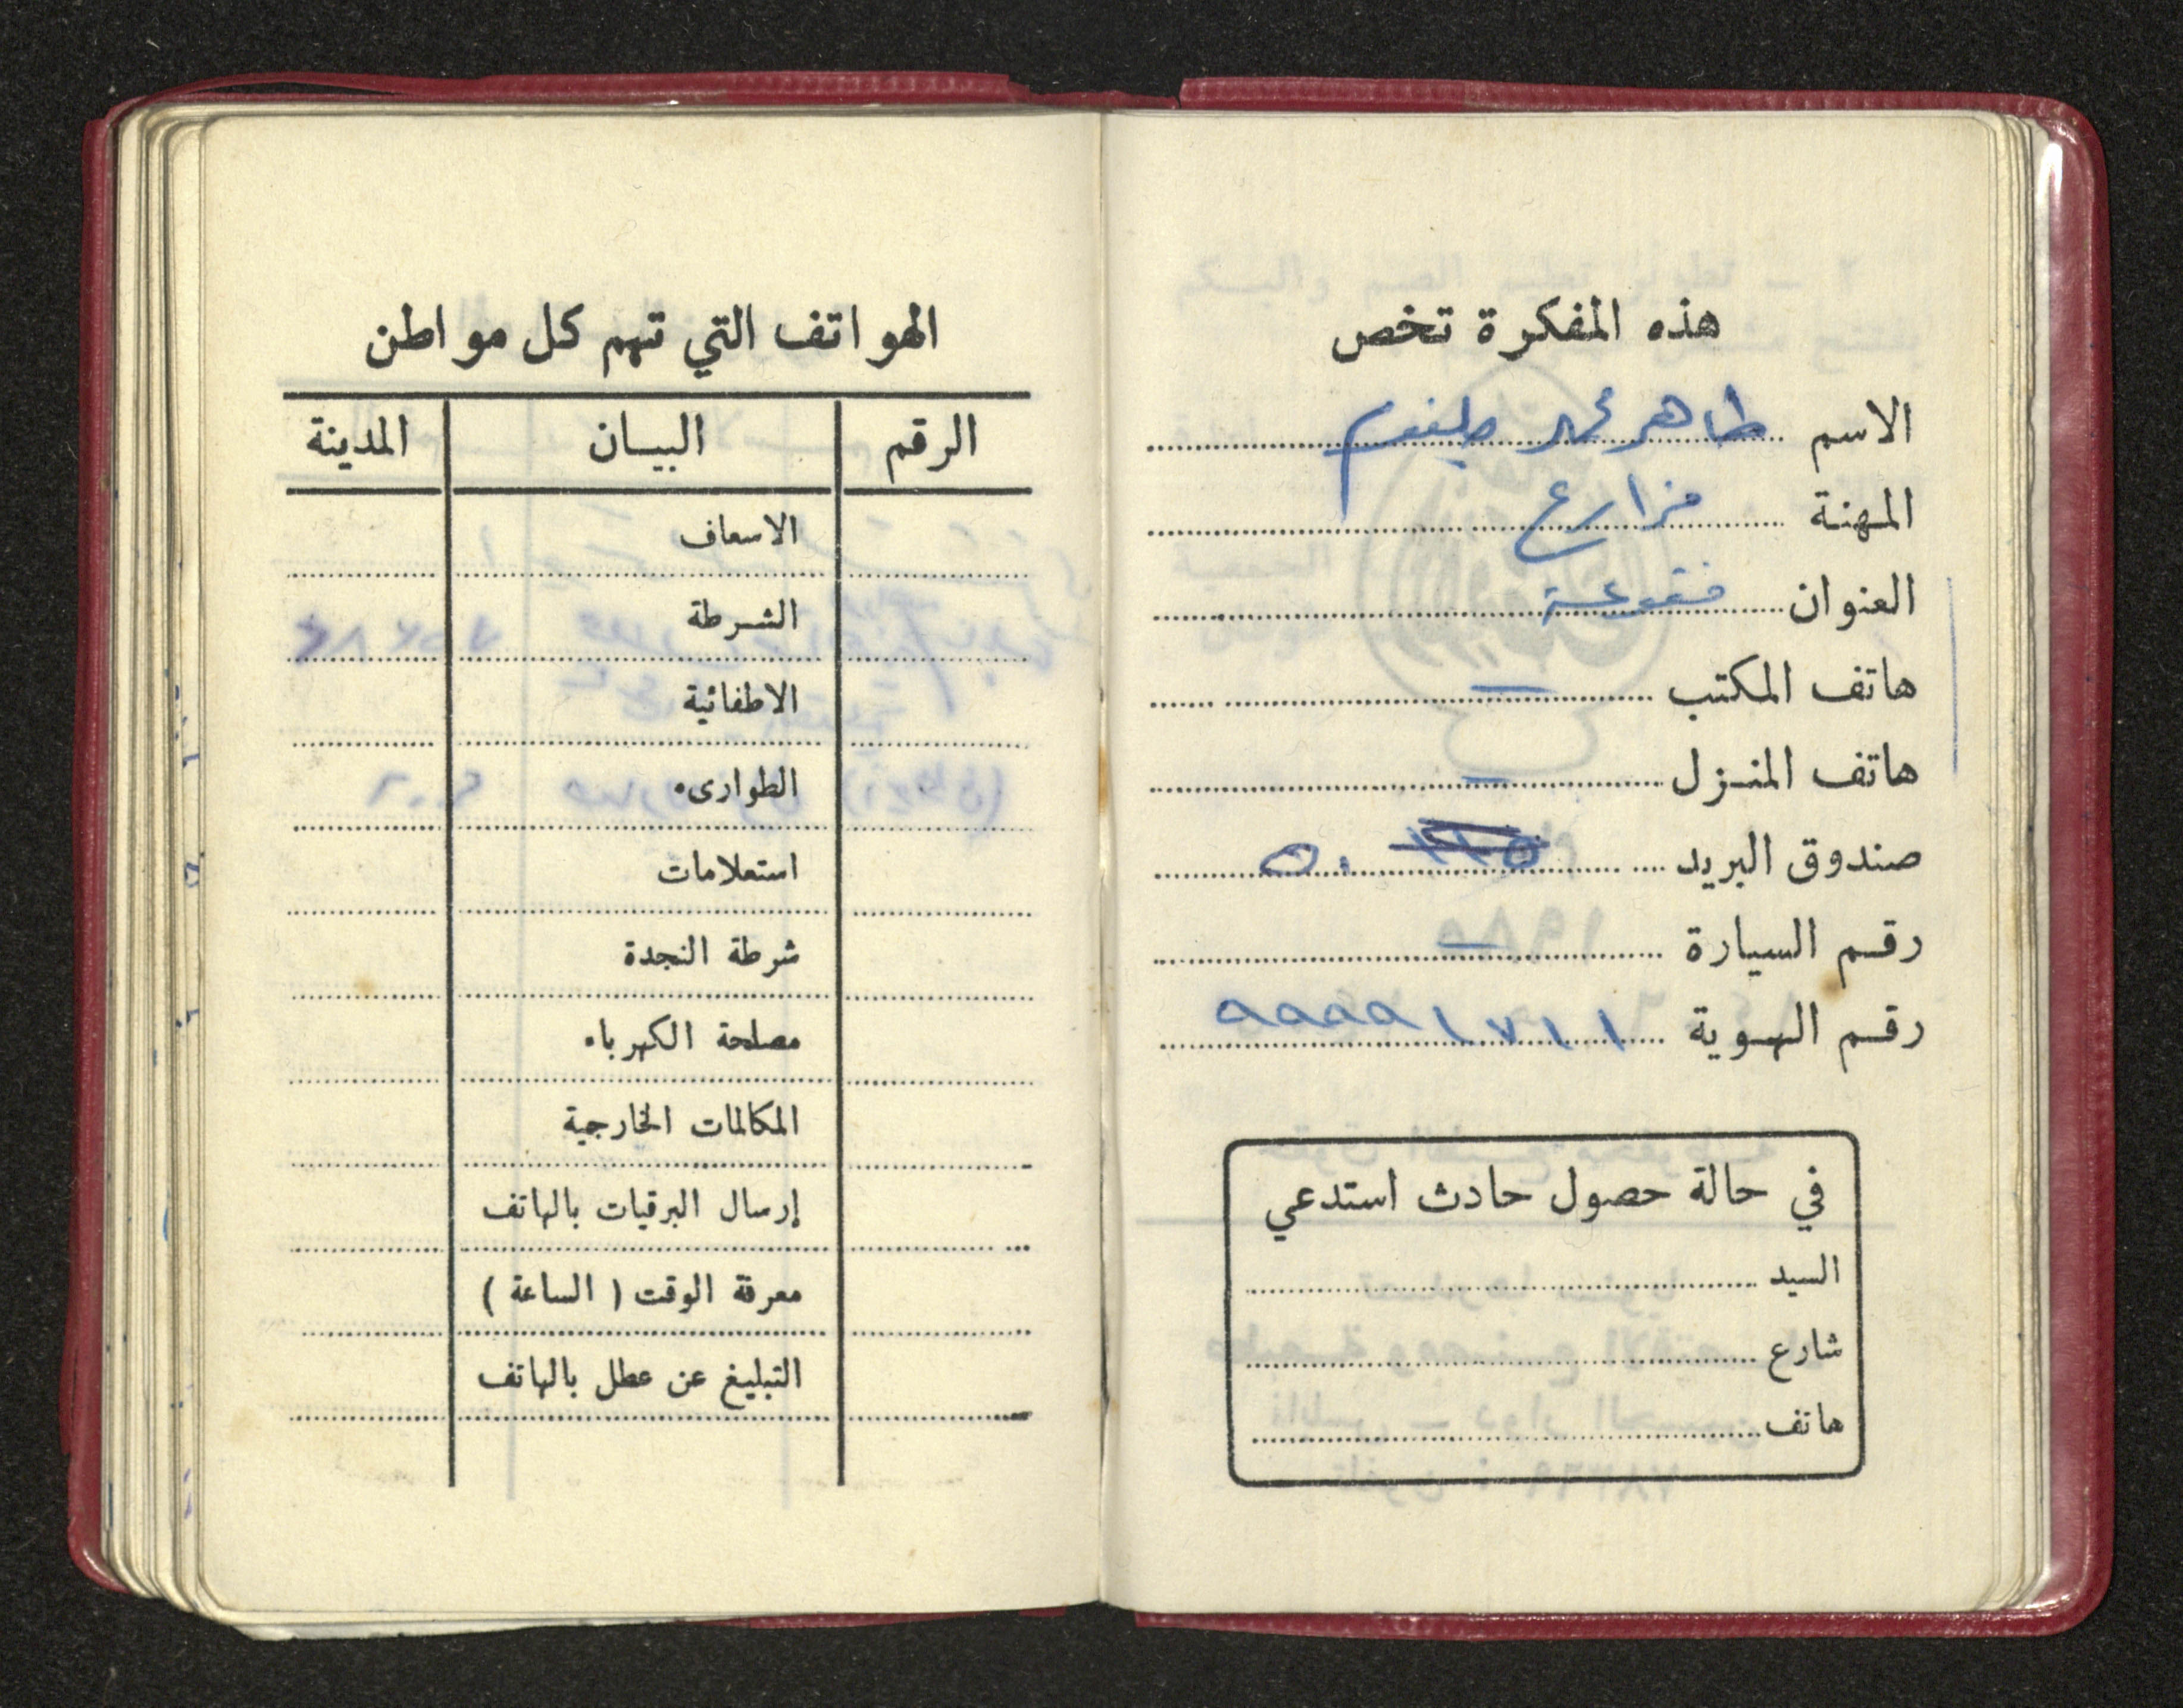 هذه المفكرة تخص
الاسم طاهر محمد
المهنة مزارع
العنوان فقوعة
هاتف المكتب —
هاتف المنزل —
صندوق البريد ٥٠
رقم السيارة —
رقم الهوية ٩٩٩٩١٧١١
في حالة حصول حادث استدعي
السيد
شارع
هاتف
الهواتف التي تهم كل مواطن
الرقم البيان المدينة
الاسعاف
الشرطة
الاطفائية
الطوارىء
استعلامات
شرطة النجدة
مصلحة الكهرباء
المكالمات الخارجية
إرسال البرقيات بالهاتف
معرفة الوقت ( الساعة )
التبليغ عن عطل بالهاتف